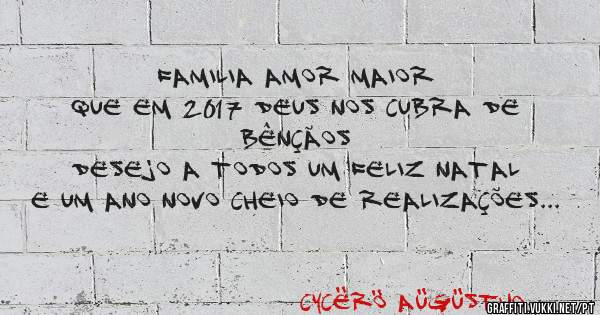 FAMILIA AMOR MAIOR
QUE EM 2017 DEUS NOS CUBRA DE
BÊNÇÃOS
DESEJO A TODOS UM FELIZ NATAL
E UM ANO NOVO CHEIO DE REALIZAÇÕES...
CYCËRÖ AÜGÜSTUO
GRAFFITI.VUKKI.NET/PT